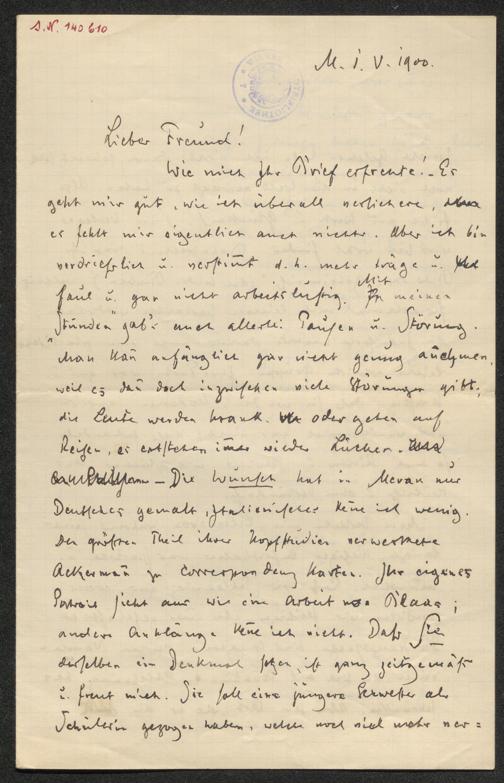 S.N. 140610
M. 1. V. 1900.
Lieber Freund!
Wie mich Ihr Brief erfreute! – Es
geht mir gut, wie ich überall versichere,
es fehlt mir eigentlich auch nichts. Aber ich bin
verdrießlich u. verstim̄t d. h. mehr träge u.
faul u. gar nicht arbeitslustig. Mit meinen
"Stunden" gab's auch allerlei Pausen u. Störung.
Man kan̄ anfänglich gar nicht genug an̄ehmen,
weil es dan̄ doch inzwischen viele Störungen gibt;
die Leute werden krank oder gehen auf
Reisen, es entstehen im̄er wieder Lücken.
– Die Wunsch hat in Meran nur
Deutsches gemalt, Italienisches ken̄e ich wenig.
Den größten Theil ihrer Kopfstudien verwertete
Ackerman̄ zu Correspondenz Karten. Ihr eigenes
Portrait sieht aus wie eine Arbeit von Blaas;
andere Anklänge ken̄e ich nicht. Daß Sie
derselben ein Denkmal setzen, ist ganz zeitgemäß
u. freut mich. Sie soll eine jüngere Schwester als
Schülerin gezogen haben, welche noch viel mehr ver=